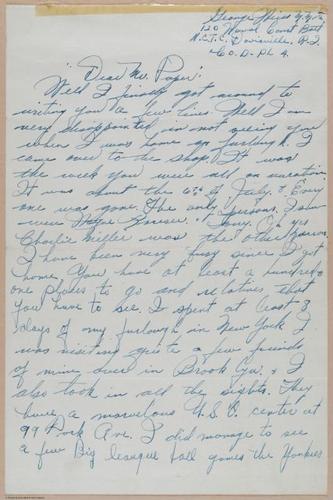 George
120 Naval Const Batt
N.C.T.C. Davisville, R.I.
Co. D. Pl 4.
Dear Mr. Paper:
Well I finally got around to
writing you a few lines. Well I am
very disappointed in not seeing you
when I was home on furlough. I
came over to the shop. It was
the week you were all on vacation.
It was about the 6th of July. & Every
one was gone. The only persons I saw
were
Charlie Miller was the other person.
I have been very busy since I got
home. You have at least a hundred &
one places to go and relatives that
you have to see. I spent at least 3
days of my furlough in New York. I
was visiting quite a few friends
of mine over in Brook
also took in all the sights. They
have a marvelous U.S.O. center at
99 Park Ave. I did manage to see
a few Big league ball games the Yankees